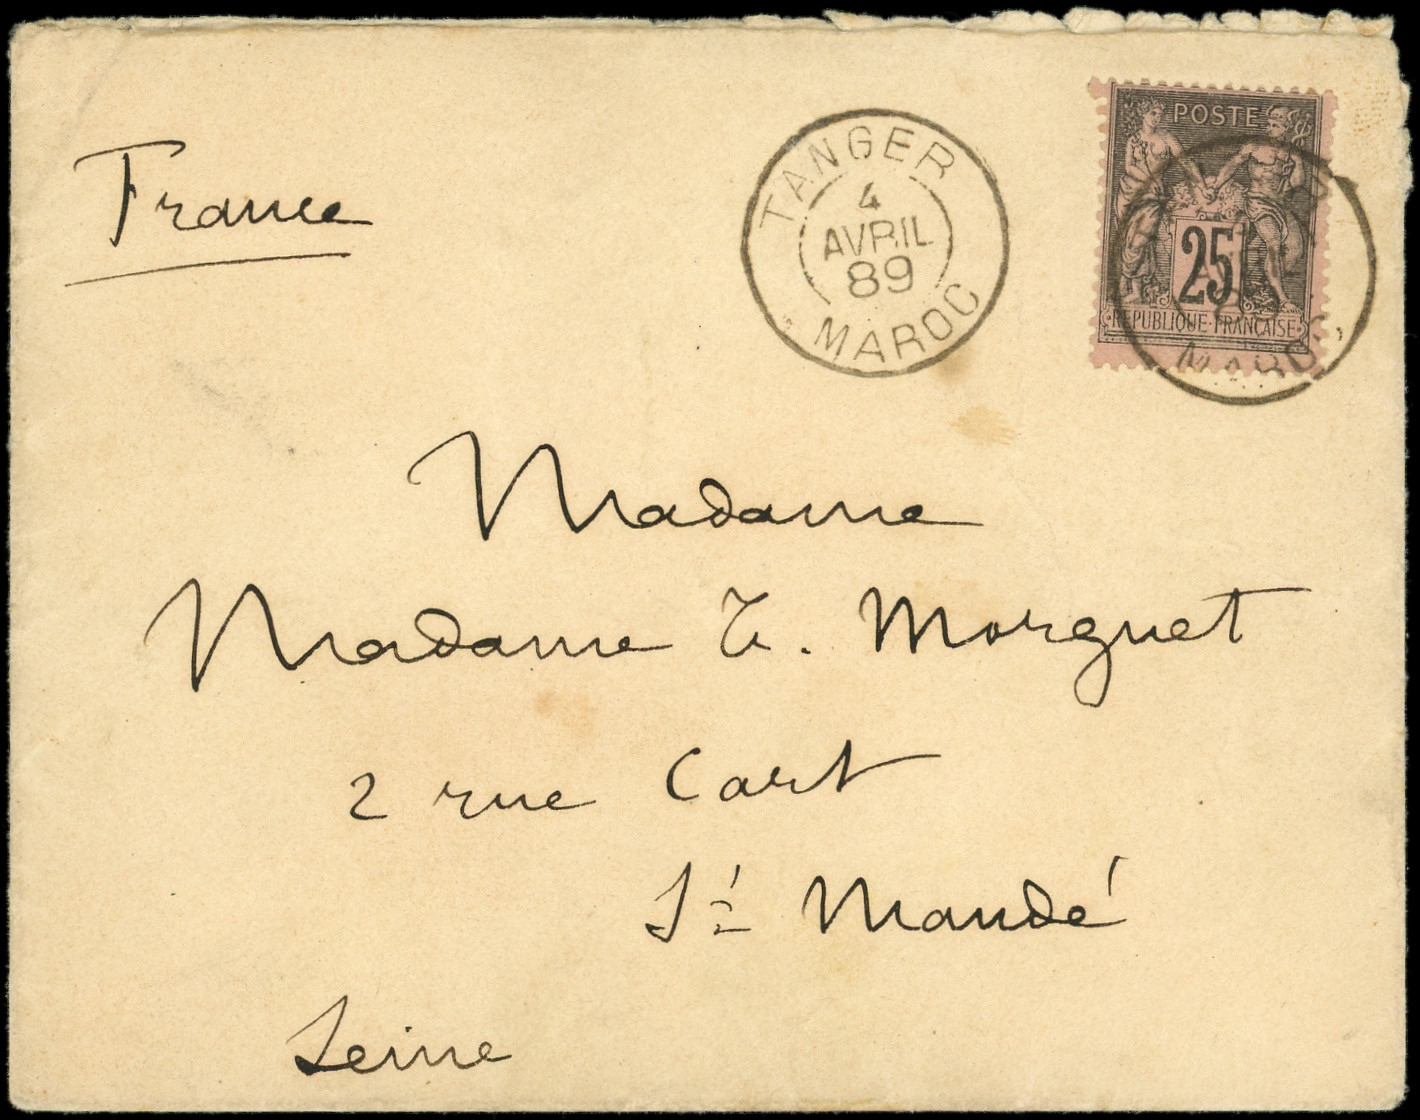 France
TANGER
4
AVRIL
89
MAROC
POSTE
25
REPUBLIQUE FRANCAISE
MAROC
Madame
Madame Morguet
2 rue Cart
St Mandé
Seine